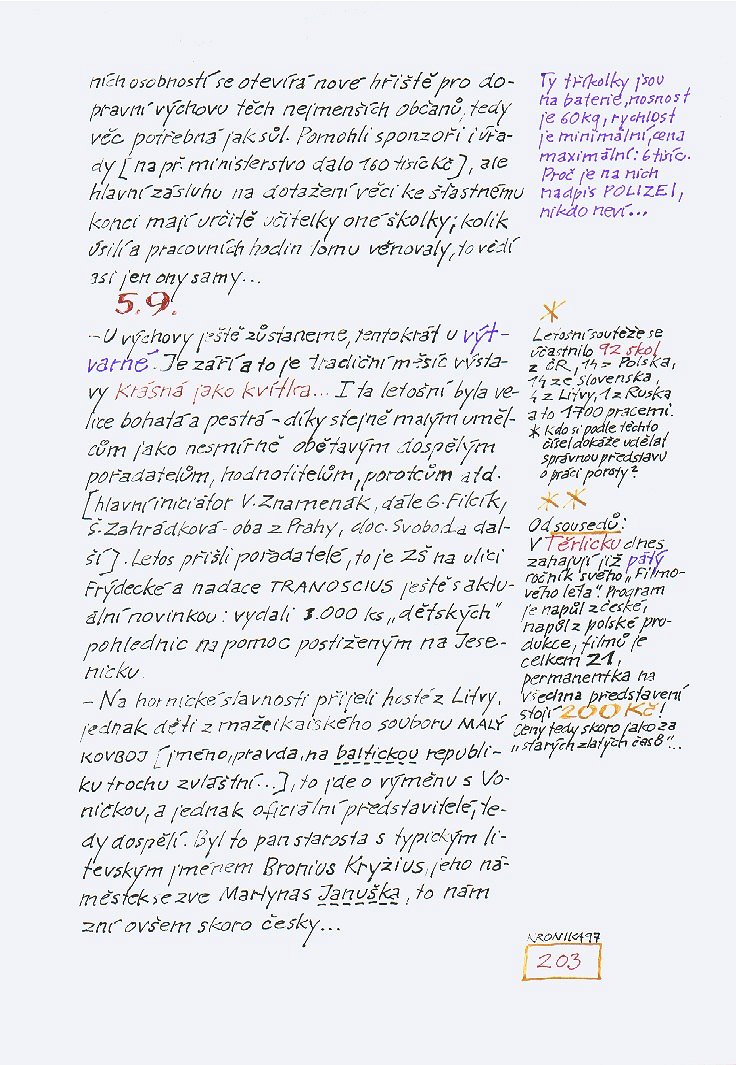 ních osobností se otevírá nové hřiště pro do-
pravní výchovu těch nejmenších občanů, tedy
věc potřebná jak sůl. Pomohli sponzoři i úřa-
dy [např. ministerstvo dalo 160 tisíc Kč], ale
hlavní zásluhu na dotažení věci ke šťastnému
konci mají určitě učitelky oné školky; kolik
úsilí a pracovních hodin tomu věnovaly, to vědí
asi jen ony samy...
5.9.
- U výchovy ještě zůstaneme, tentokrát u výt-
varné. Je září a to je tradiční měsíc výsta-
vy Krásná jako kvítka... I ta letošní byla ve-
lice bohatá a pestrá - díky stejně malým uměl-
cům jako nesmírně obětavým dospělým
pořadatelům, hodnotitelům, porotcům atd.
[hlavní iniciátor V. Znamenák, dále G. Filcík,
Š. Zahrádková - oba z Prahy, doc. Svoboda dal-
ší]. Letos přišli pořadatelé, to je ZŠ na ulici
Frýdecké a nadace TRANOSCIUS ještě s aktu-
ální novinkou: vydali 3.000 ks „dětských“
pohlednic na pomoc postiženým na Jese-
nicku.
- Na hornické slavnosti přijeli hosté z Litvy,
jednak děti z mažeikaiského souboru MALÝ
KOVBOJ [jméno, pravda, na baltickou republi-
ku trochu zvláštní...], to jde o výměnu s Vo-
ničkou, a jednak oficiální představitelé, te-
dy dospělí. Byl to pan starosta s typickým li-
tevským jménem Bronius Kryžius, jeho ná-
městek se zve Martynas Januška, to nám
zní ovšem skoro česky...
Ty tříkolky jsou
na baterie, nosnost
je 60 kg, rychlost
je minimální, cena
maximální: 6 tisíc.
Proč je na nich
nadpis POLIZEI,
nikdo neví...
*
Letošní soutěže se
účastnilo 92 škol
z ČR, 14 z Polska,
14 ze Slovenska,
4 z Litvy, 1 z Ruska
a to 1700 pracemi.
* Kdo si podle těchto
čísel dokáže udělat
správnou představu
o práci poroty?
* *
Od sousedů:
V Těrlicku dnes
zahajují již pátý
ročník svého „Filmo-
vého léta“. Program
je napůl z české,
napůl z polské pro-
dukce, filmů je
celkem 21,
permanentka na
všechna představení
stojí 200 Kč!
Ceny tedy skoro jako za
„starých zlatých časů“...
KRONIKA 97
203